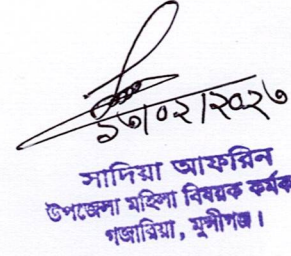 ১৩/০২/২০২৩
সাদিয়া আফরিন
উপজেলা মহিলা বিষয়ক কর্মক
গজারিয়া, মুন্সীগঞ্জ।